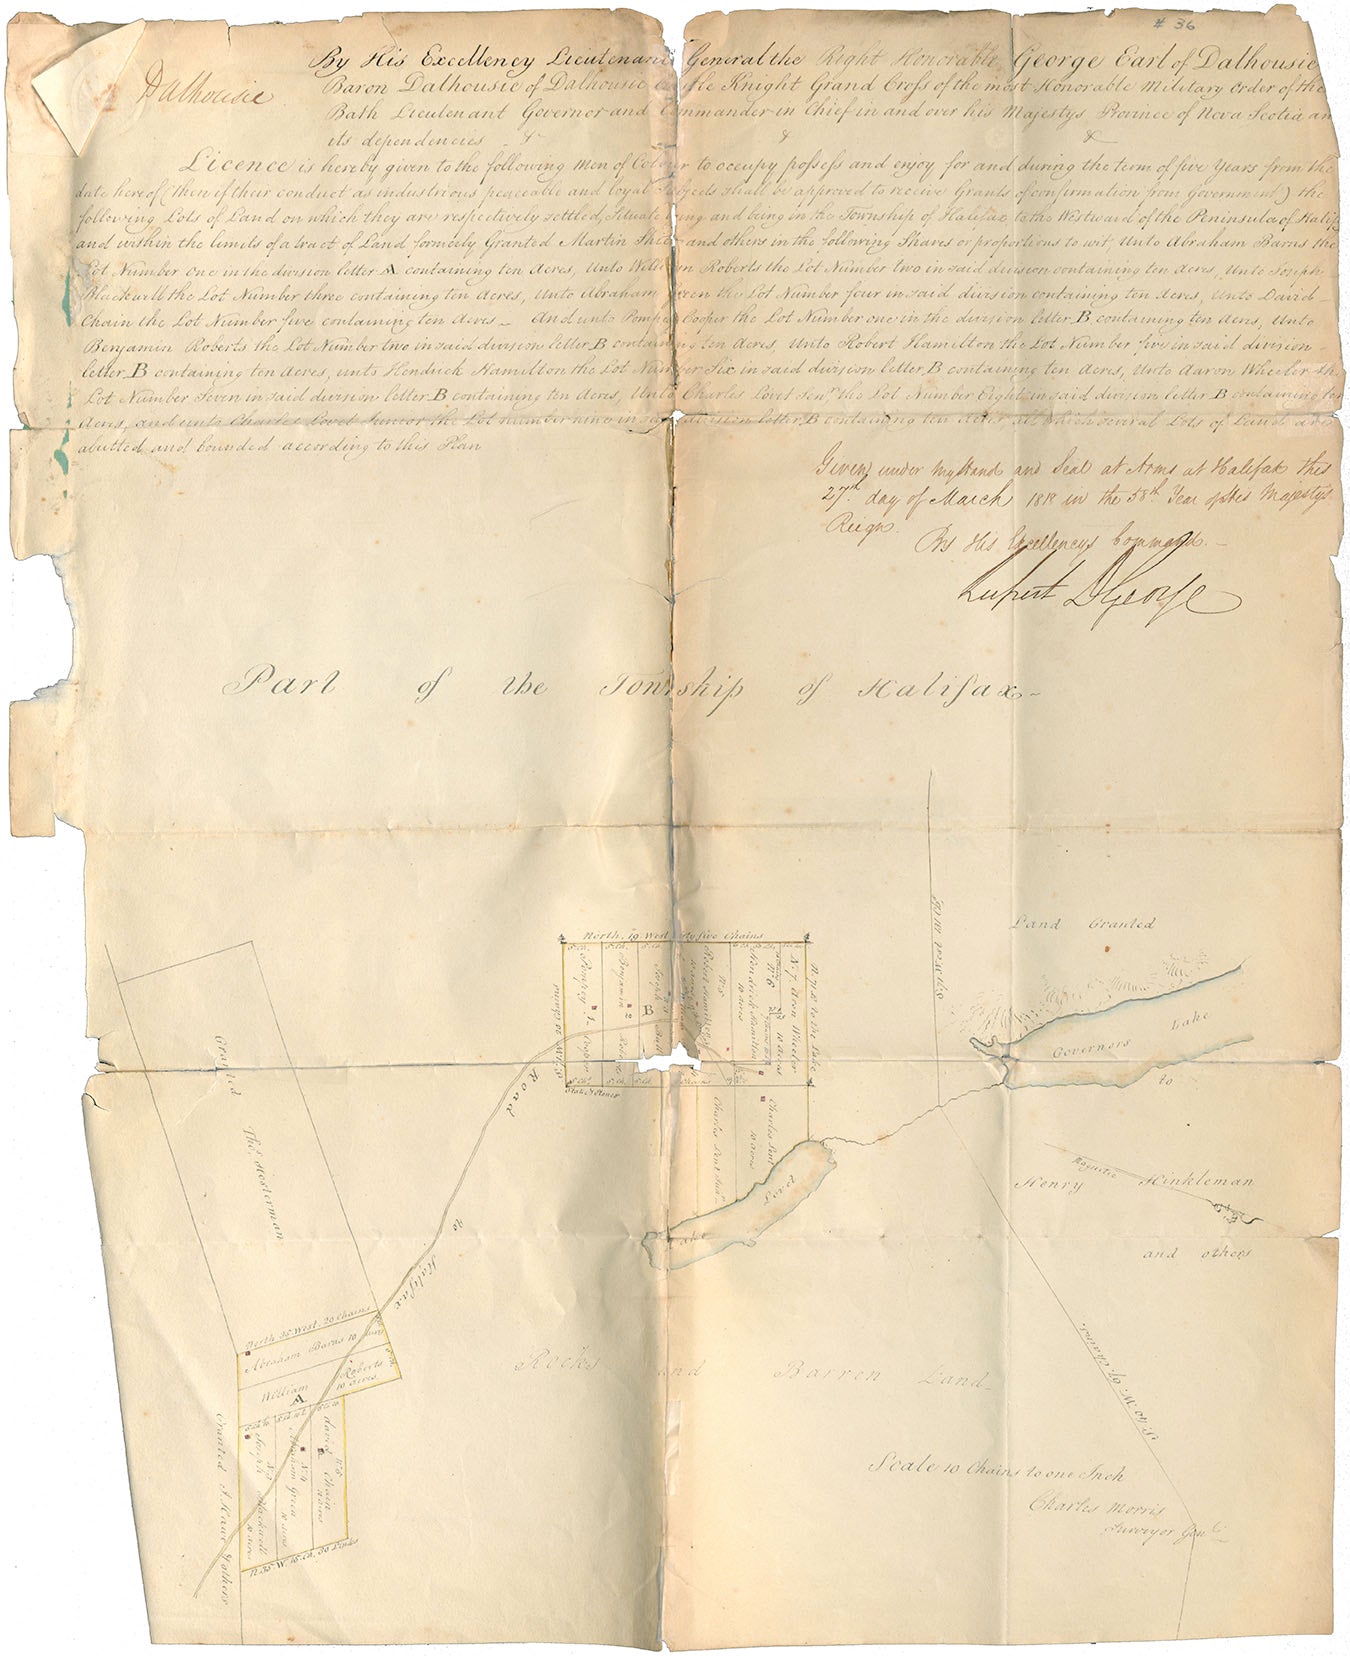 # 36
Dalhousie
By His Excellency Lieutenant General the Right Honorable George Earl of Dalhousie
Baron Dalhousie of Dalhousie Castle Knight Grand Cross of the most Honorable Military Order of the
Bath Lieutenant Governor and Commander in Chief in and over his Majestys Province of Nova Scotia an
its dependencies &c &c &c
Licence is hereby given to the following Men of Colour to occupy possess and enjoy for and during the term of five Years from the
date hereof (then if their conduct as industrious peaceable and loyal Subjects shall be approved to receive Grants of confirmation from Government) the
following Lots of Land on which they are respectively settled, Situate lying and being in the Township of Halifax to the Westward of the Peninsula of Halifx
and within the limits of a tract of Land formerly Granted Martin and others in the following Shares or proportions to wit, Unto Abraham Barns the
Lot Number one in the division letter A containing ten Acres, Unto William Roberts the Lot Number two in said division containing ten acres, Unto Joseph
Blackwell the Lot Number three containing ten Acres, Unto Abraham Green the Lot Number four in said division containing ten Acres, Unto David
Chain the Lot Number five containing ten Acres – And unto Pompey Cooper the Lot Number one in the division letter B containing ten Acres, Unto
Benjamin Roberts the Lot Number two in said division letter B containing ten Acres, Unto Robert Hamilton the Lot Number five in said division
letter B containing ten Acres, unto Hendrick Hamilton the Lot Number Six in said division letter B containing ten Acres, Unto Aaron Wheeler the
Lot Number Seven in said division letter B containing ten Acres, Unto Charles Lovet Senr the Lot Number Eight in said division letter B containing ten
Acres, and unto Charles Lovet Junior the Lot number nine in said division letter B containing ten Acres all which several Lots of Land are
abutted and bounded according to this Plan
Given under my Hand and Seal at Arms at Halifax this
27th day of March 1818 in the 58th Year of His Majestys
Reign.
By His Excellencys Command.
Rupert D George
Part of the Township of Halifax
Land Granted
North, 19 West
five Chains
Pompey
Benjamin
B
Hendrick Hamilton
10 acres
Governors Lake
to
Road
to
Halifax
Granted
Thos. Hosterman
Henry Hinkleman
and others
Magnetic
Charles Lovet
10 acres
Lovet
Lake
North 35 West, 20 Chains
Abraham Barns 10 acres
William Roberts
10 acres
A
David Chain
Abraham Green
10 acres
Joseph Blackwell
10 acres
N. 35 W. 15 Ch. 50 Links
Rocks and Barren Land
Scale 10 Chains to one Inch
Charles Morris
Surveyor Genl.